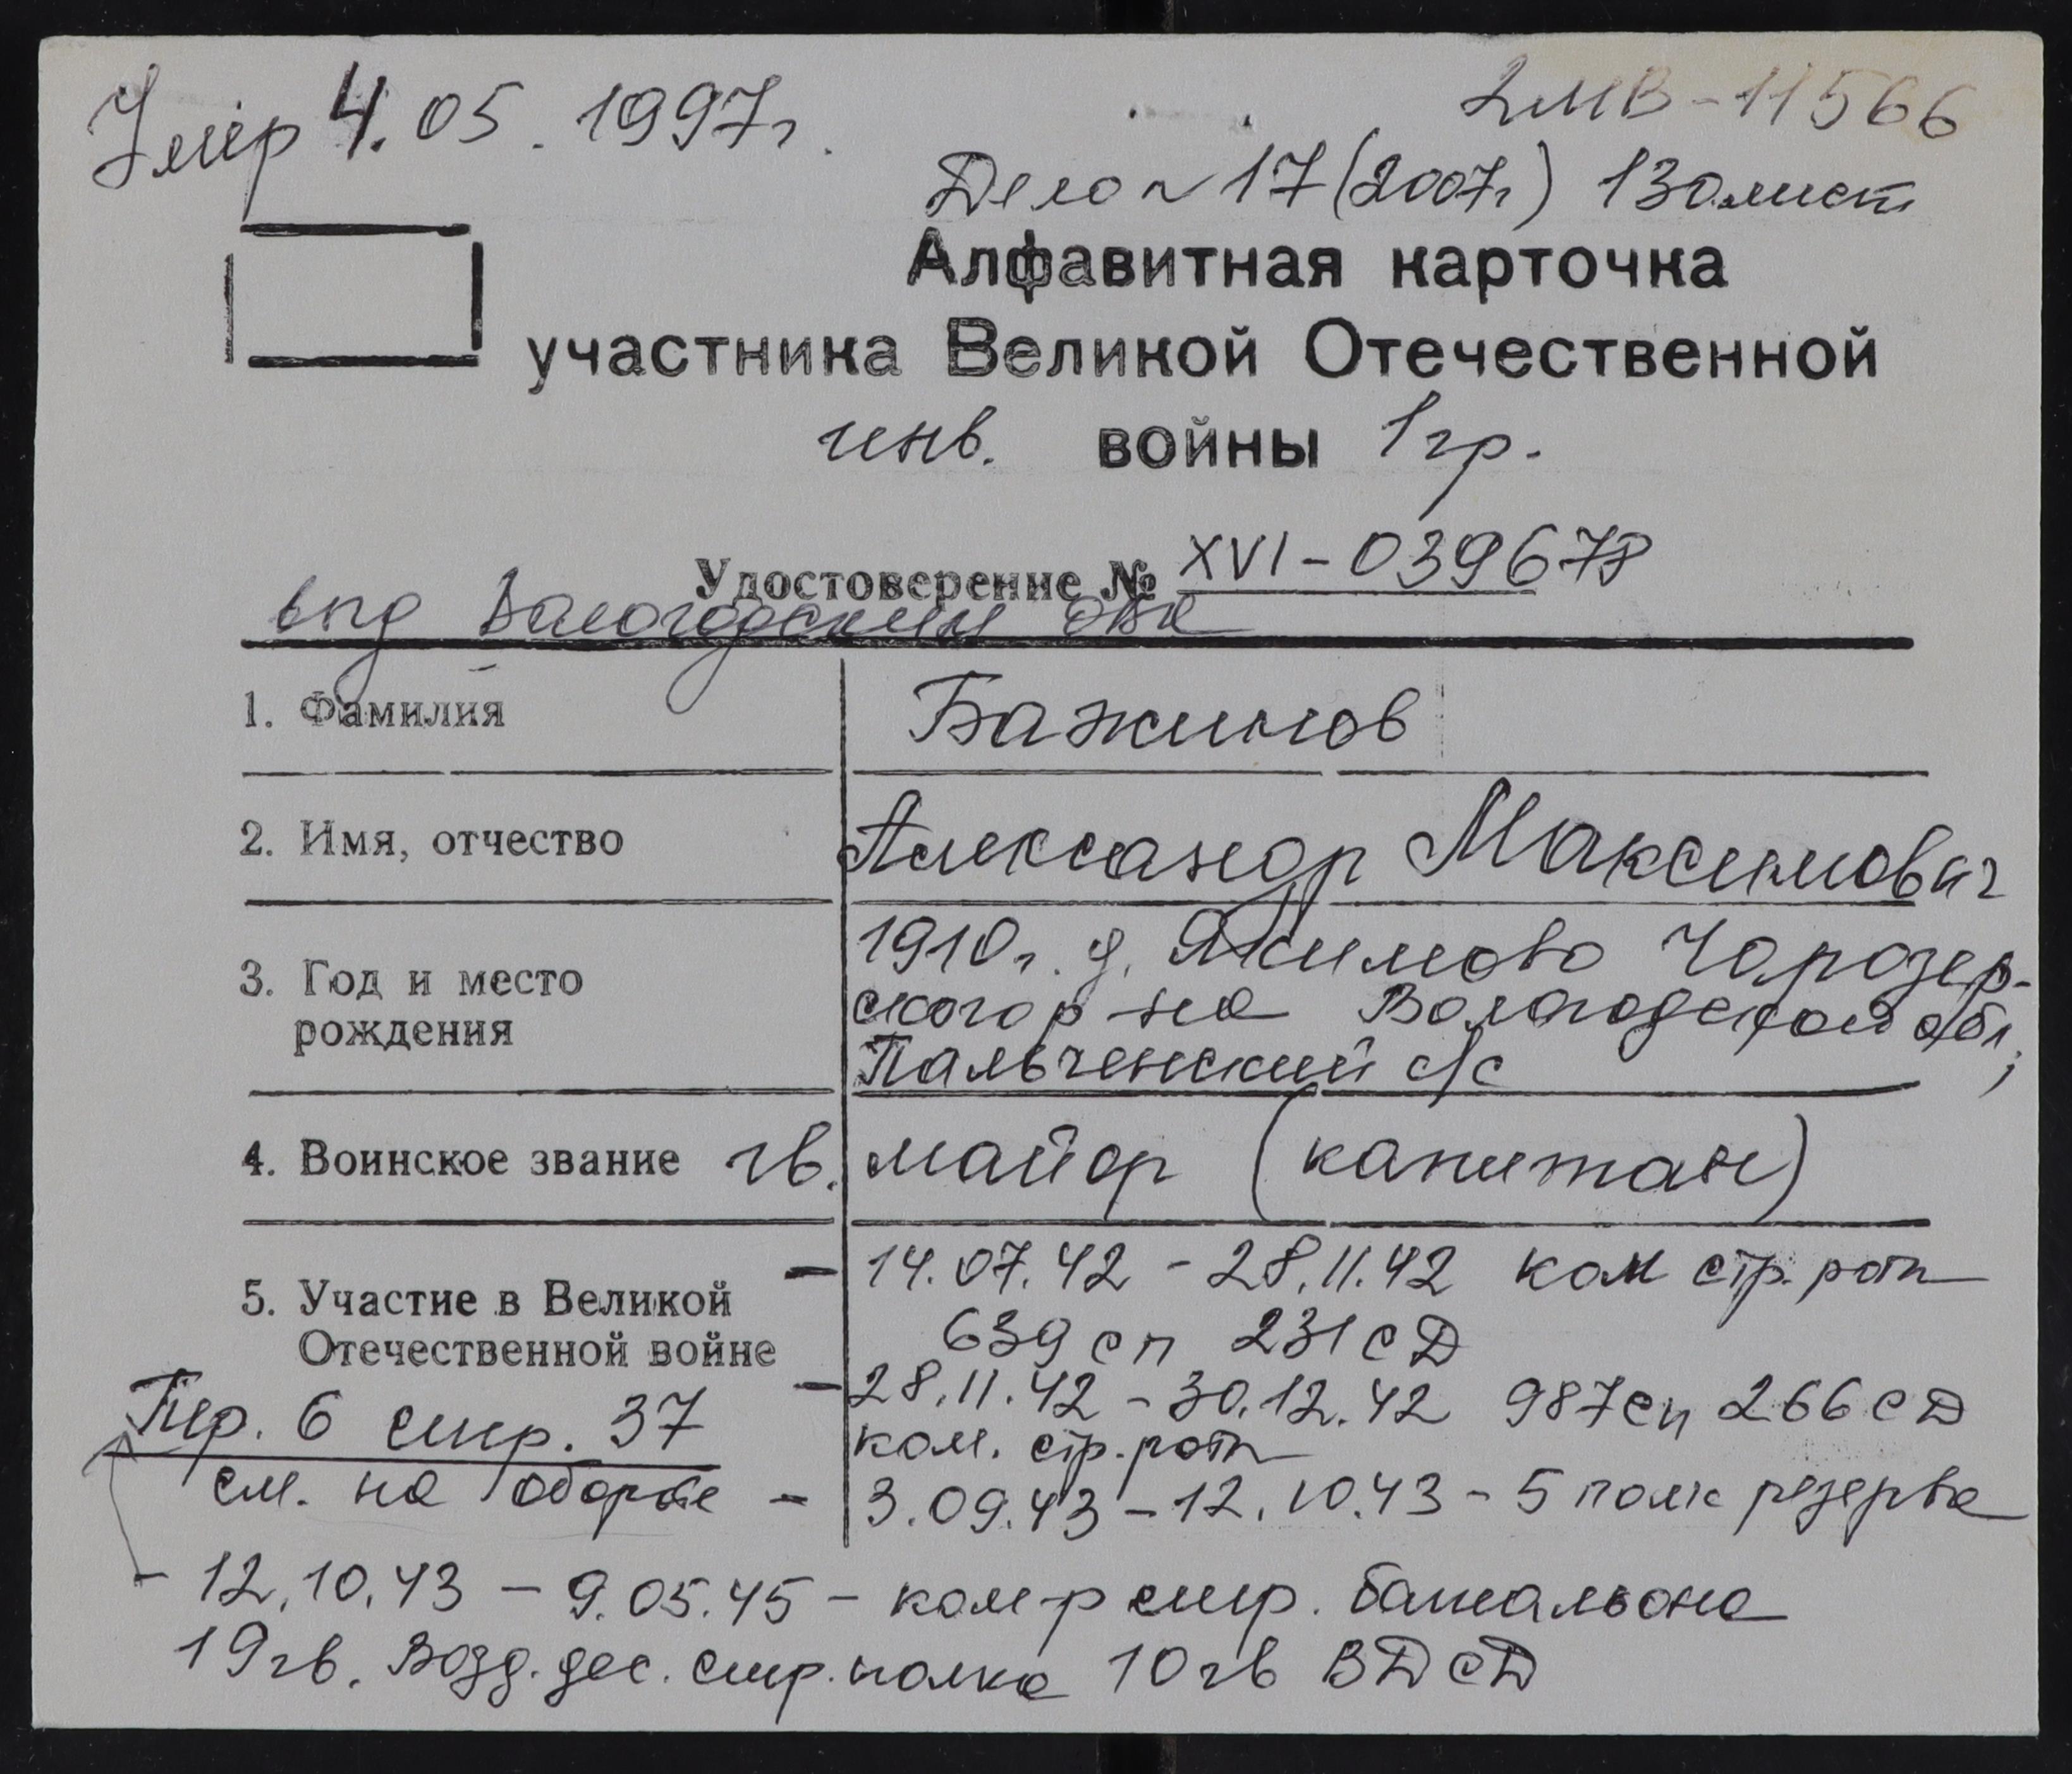 Умер 4.05.1997г.
2МВ-11566
Дело № 17 (2007г) 130лист
Алфавитная карточка
участника Великой Отечественной
инв. войны 1гр.
Удостоверение № XVI-039678
выд Вологодским ОВК
1. Фамилия
Бажинов
2. Имя, отчество
Александр Максимович
3. Год и место
рождения
1910г. д. Якимово Чарозер-
ского р-на Вологодской обл,
Пальченский с/с
4. Воинское звание гв. майор (капитан)
5. Участие в Великой
Отечественной войне
- 14.07.42 - 28.11.42 ком стр. роты
639 сп 231 сД
- 28.11.42 - 30.12.42 987сп 266 сД
ком. стр. роты
Пер. 6 стр. 37
см. на обороте
- 3.09.43 - 12.10.43 - 5 полк резерва
- 12.10.43 - 9.05.45 - ком-р стр. батальона
19 гв. Возд. дес. стр. полка 10 гв ВДсД